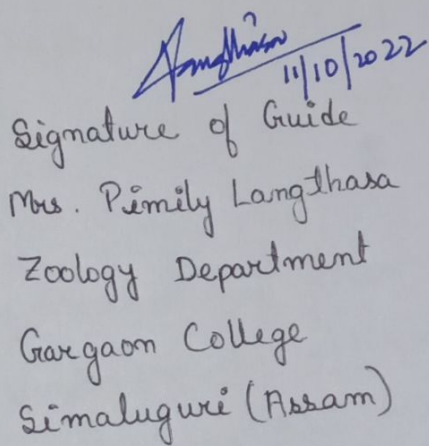 11/10/2022
Signature of Guide
Mrs. Pimily Langthasa
Zoology Department
Gargaon College
Simaluguri (Assam)